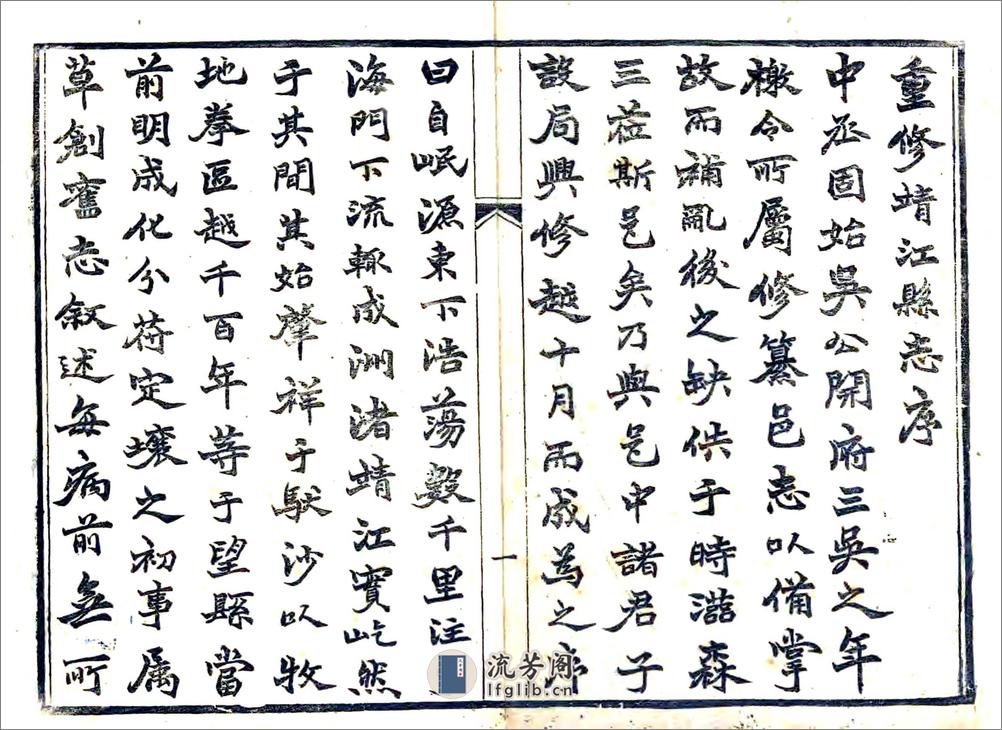 重修靖江縣志序
中丞固始吳公開府三吳之年
檄令所屬修纂邑志以備掌
故而補亂後之缺佚于時滋森
三蒞斯邑矣乃與邑中諸君子
設局興修越十月而成為之序
一
曰自岷源東下浩蕩數千里注
海門下流輙成洲渚靖江實屹然
于其間其始肇祥于馱沙以牧
地拳區越千百年等于望縣當
前明成化分符定壤之初事属
草創舊志敘述每病前無所
流芳阁
lfglib.cn